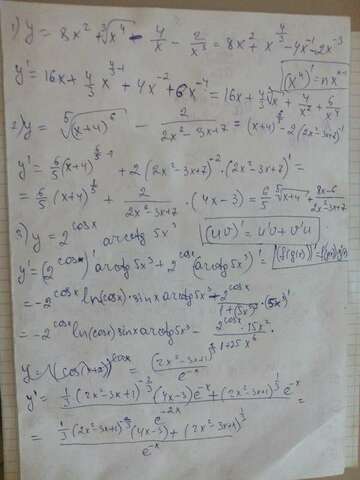 1) y = 8x² + ∛x⁴ - 4/x - 2/x³ = 8x² + x^(4/3) - 4x⁻¹ - 2x⁻³
y' = 16x + 4/3 x^(4/3-1) + 4x⁻² + 6x⁻⁴ = 16x + 4/3 ∛x + 4/x² + 6/x⁴
(xⁿ)' = nxⁿ⁻¹
2) y = ⁵√(x+4)⁶ - 2/(2x²-3x+7) = (x+4)^(6/5) - 2(2x²-3x+7)⁻¹
y' = 6/5 (x+4)^(6/5-1) + 2(2x²-3x+7)⁻² · (2x²-3x+7)' =
= 6/5 (x+4)^(1/5) + 2/(2x²-3x+7) · (4x-3) = 6/5 ⁵√(x+4) + (8x-6)/(2x²-3x+7)
3) y = 2^cosx arcctg 5x³
(uv)' = u'v + v'u
y' = (2^cosx)' arcctg 5x³ + 2^cosx (arcctg 5x³)' =
= -2^cosx ln(cosx) · sinx arcctg 5x³ - 2^cosx/(1+(5x³)²) · (5x³)'
= -2^cosx ln(cosx) sinx arcctg 5x³ - (2^cosx · 15x²)/(1+25x⁶)
= (2x²-3x+1)^(1/3)/e⁻ˣ
y' = (1/3 (2x²-3x+1)^(-2/3) (4x-3)e⁻ˣ + (2x²-3x+1)^(1/3) e⁻ˣ)/e⁻²ˣ =